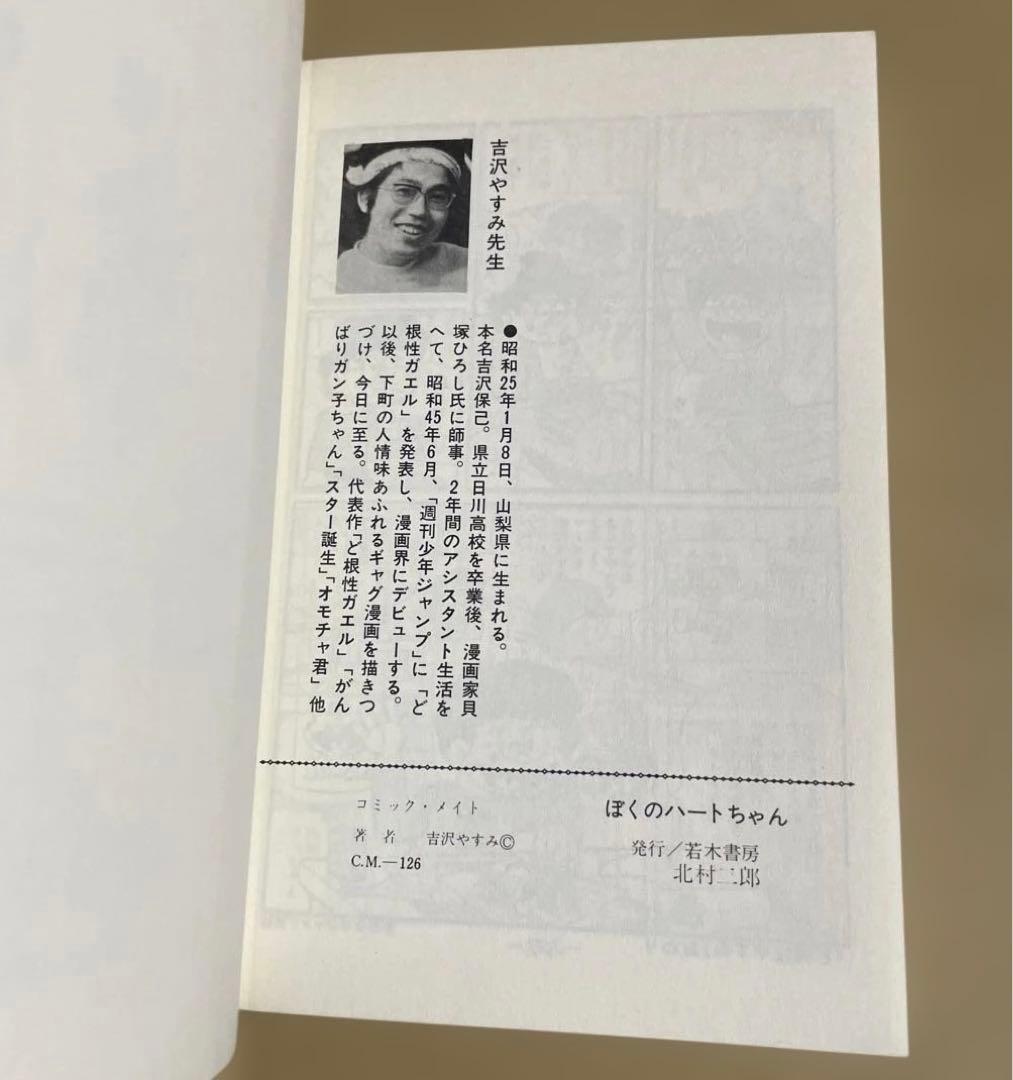 吉沢やすみ先生
●昭和25年1月8日、山梨県に生まれる。
本名吉沢保己。県立日川高校を卒業後、漫画家貝
塚ひろし氏に師事。2年間のアシスタント生活を
へて、昭和45年6月、「週刊少年ジャンプ」に「ど
根性ガエル」を発表し、漫画界にデビューする。
以後、下町の人情味あふれるギャグ漫画を描きつ
づけ、今日に至る。代表作「ど根性ガエル」「がん
ばりガン子ちゃん」「スター誕生」「オモチャ君」他
ぼくのハートちゃん
発行/若木書房
北村二郎
コミック・メイト
著者 吉沢やすみ©
C.M.—126